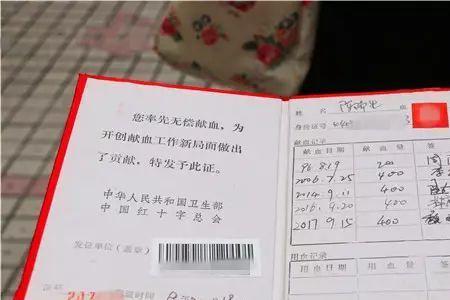 您率先无偿献血，为
开创献血工作新局面做出
了贡献，特发予此证。
中华人民共和国卫生部
中国红十字总会
发证单位（盖章）
姓名
血
身份证号
献血记录
献血日期 献血量 签
98.8.19 200
2006.7.25 400
2014.9.11 400
2016.9.20 400
2017.9.15 400
用血记录
用血日期 用血量 签